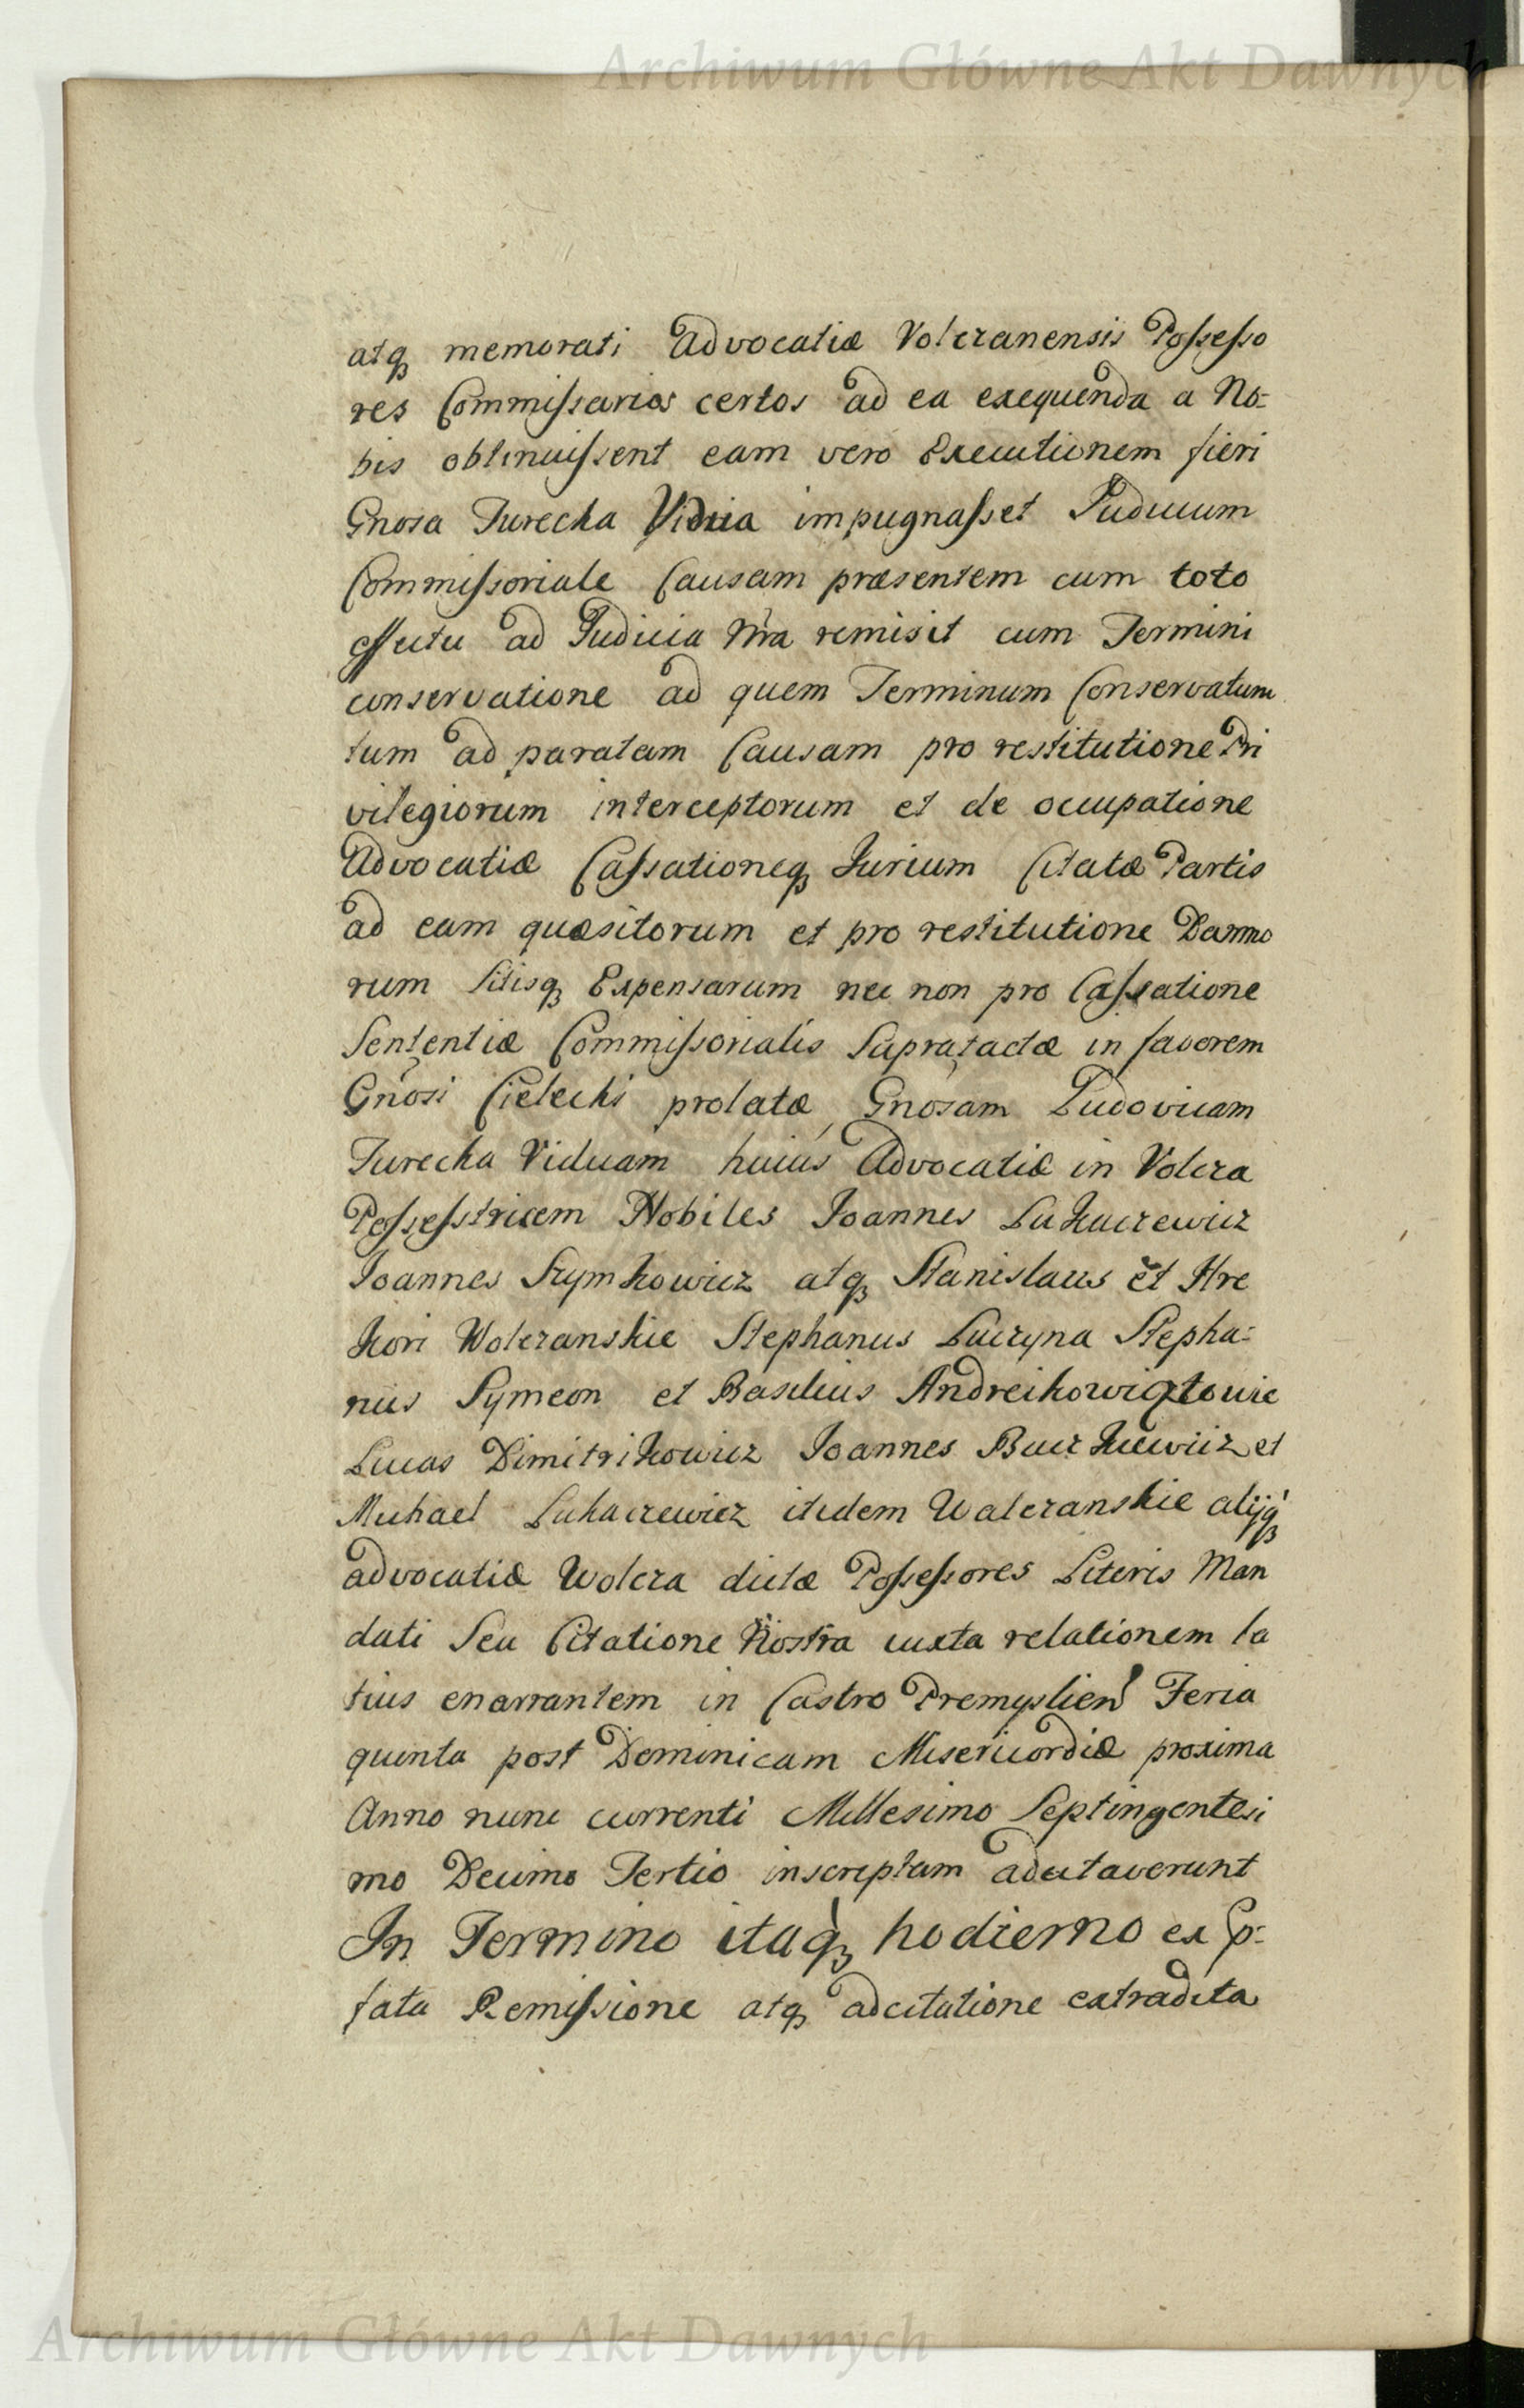 Archiwum Główne Akt Dawnych
atq memorati Advocatiæ Volczanensis Possesso
res Commissarios certos ad ea exequenda a No-
bis obtinuissent eam vero Executionem fieri
Gnosa Turecka Vidua impugnasset Judicium
Commissoriale Causam præsentem cum toto
effectu ad Judicia Nra remisit cum Termini
conservatione ad quem Terminum Conservatum
tum ad paratam Causam pro restitutione Pri
vilegiorum interceptorum et de occupatione
Advocatiæ Cassationeq Jurium Citatæ Partis
ad eam quæsitorum et pro restitutione Damno
rum Litisq Expensarum nec non pro Cassatione
Sententiæ Commissorialis Supratactæ in favorem
Gnosi Cielecki prolatæ, Gnosam Ludovicam
Turecka Viduam huius Advocatiæ in Volcza
Possesstricem Nobiles Joannes Lukaczewicz
Joannes Szymkowicz atq Stanislaus et Hre
hori Wolczanskie Stephanus Luczyna Stepha-
nus Symeon et Basilius Andreikowiqtowie
Lucas Dimitrikowicz Joannes Buczkiewicz et
Michael Lukaczewicz itidem Walczanskie alijq
advocatiæ Wolcza dictæ Possessores Literis Man
dati Seu Citatione Nostra iuxta relationem la
tius enarrantem in Castro Premyslien Feria
quinta post Dominicam Misericordiæ proxima
Anno nunc currenti Millesimo Septingentesi
mo Decimo Tertio inscriptam adcitaverunt
In Termino itaq hodierno ex p-
fata Remissione atq adcitatione extradita
Archiwum Główne Akt Dawnych